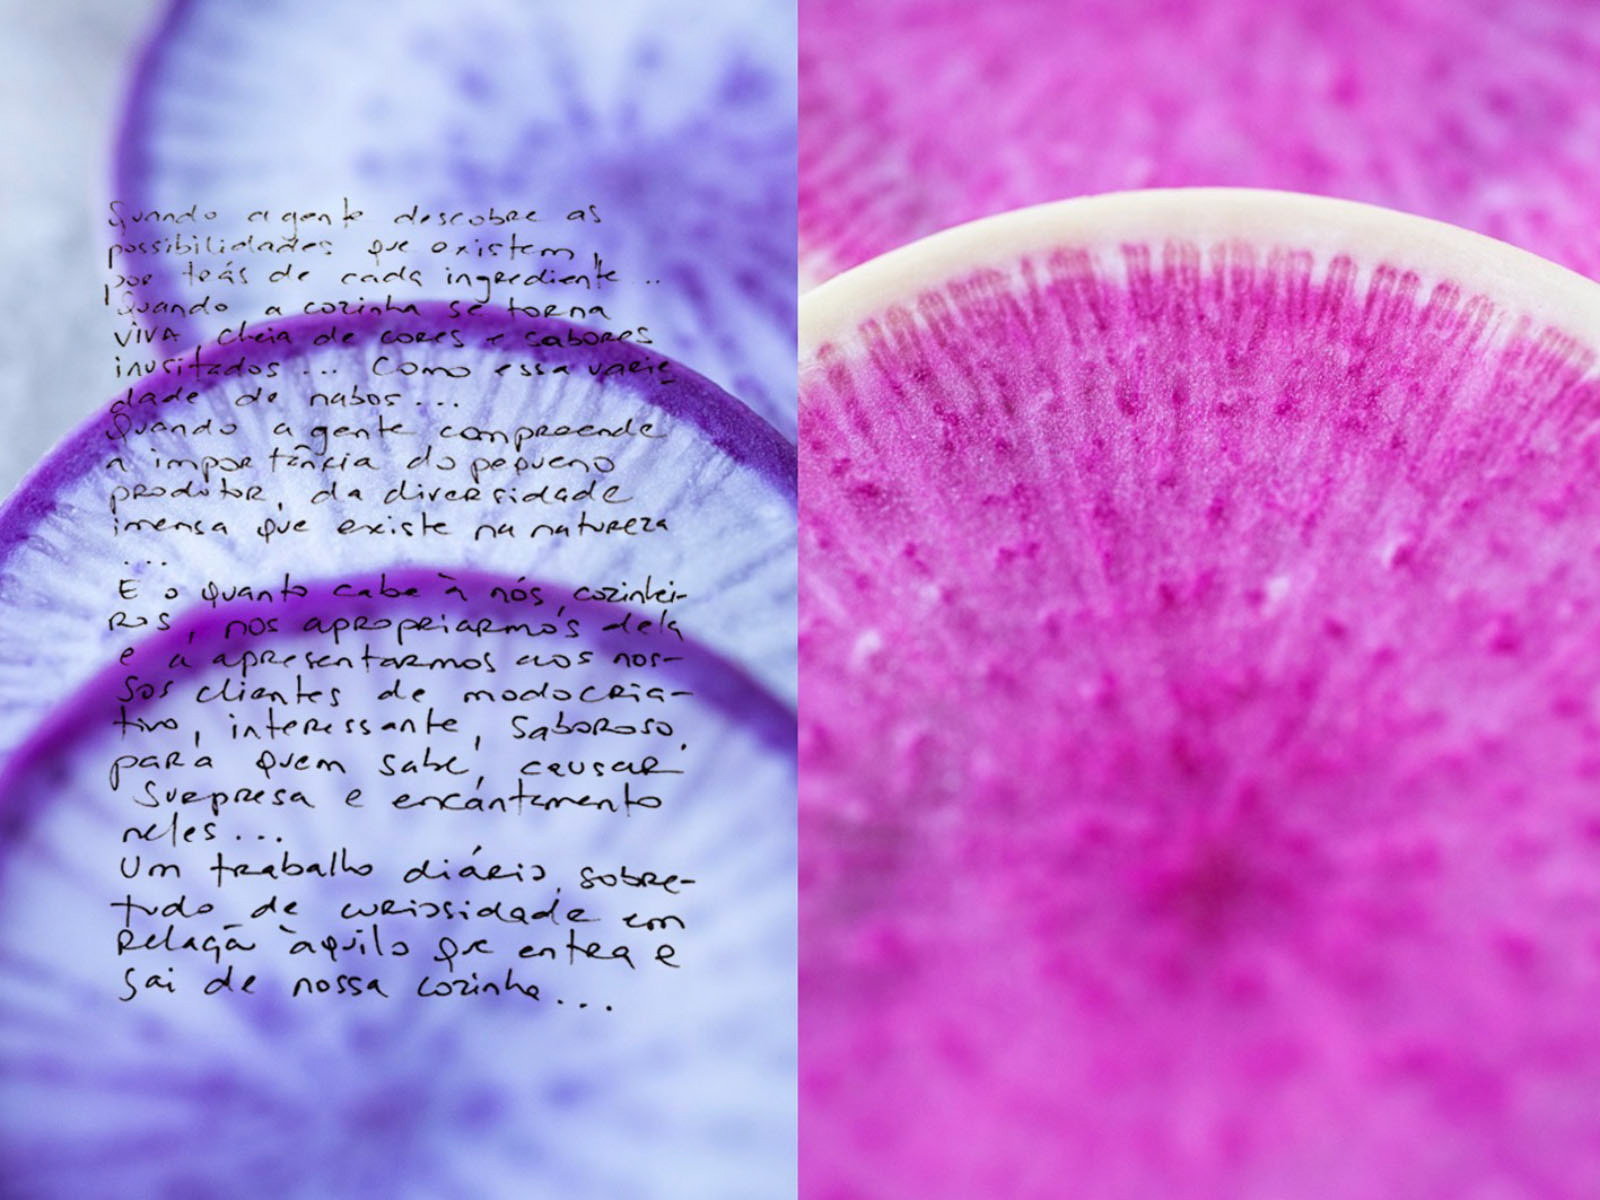 Quando a gente descobre as
possibilidades que existem
por trás de cada ingrediente...
Quando a cozinha se torna
viva, cheia de cores e sabores
inusitados... Como essa varie-
dade de nabos...
Quando a gente compreende
a importância do pequeno
produtor, da diversidade
imensa que existe na natureza
...
E o quanto cabe à nós, cozinhei-
ros, nos apropriarmos dela
e a apresentarmos aos nos-
sos clientes de modo cria-
tivo, interessante, saboroso,
para quem sabe, causar
surpresa e encantamento
neles...
Um trabalho diário, sobre-
tudo de curiosidade em
relação àquilo que entra e
sai de nossa cozinha...